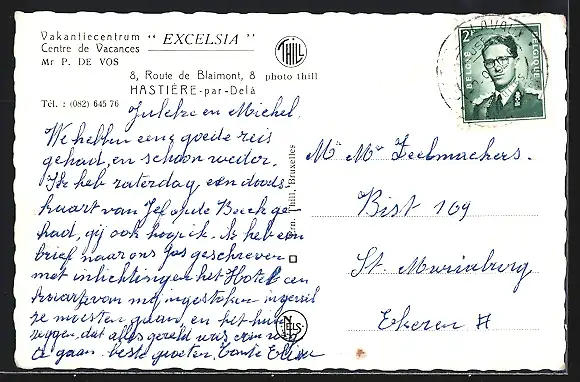 Vakantiecentrum " EXCELSIA "
Centre de Vacances
Mr P. DE VOS
THILL
8, Route de Blaimont, 8 photo thill
HASTIÈRE-par-Delà
Tél. : (082) 645 76
BELGIE BELGIQUE
Juleke en Michel
We hebben eene goede reis
gehad, en schoon weder.
Ik heb zaterdag een doods
kaart van Jef op de Boeck ge
had, gij ook hoop ik. Ik heb een
brief naar ons Jos geschreven
met inlichtingen het Hotel en
kaart van mij ingestoken ingeval
ze moesten gaan en het huis
zeggen, dat alles geregeld was
te gaan. beste groeten, Tante Elise
Ern. Thill, Bruxelles
NELS
Mr Mr Zeelmaekers.
Bist 109
St. Mariaburg
Ekeren